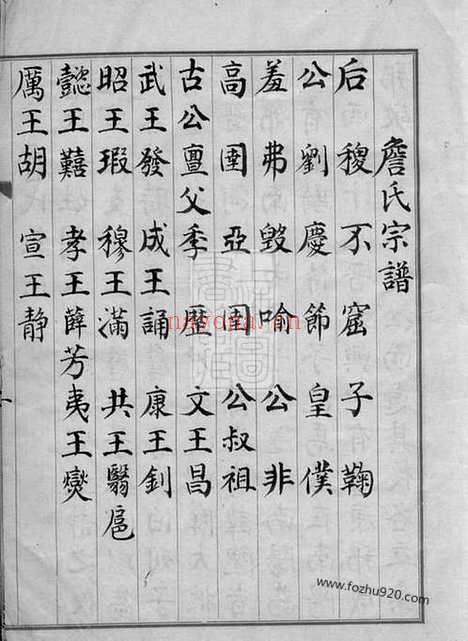 詹氏宗譜
后稷 不窋 子鞠
公劉 慶節 皇僕
羞弗 毁喻 公非
高圉 亞圉 公叔祖
古公亶父 季歷 文王昌
武王發 成王誦 康王釗
昭王瑕 穆王滿 共王翳扈
懿王囏 孝王薛芳 夷王燮
厲王胡 宣王静
nayona.cn
www.fozhu920.com